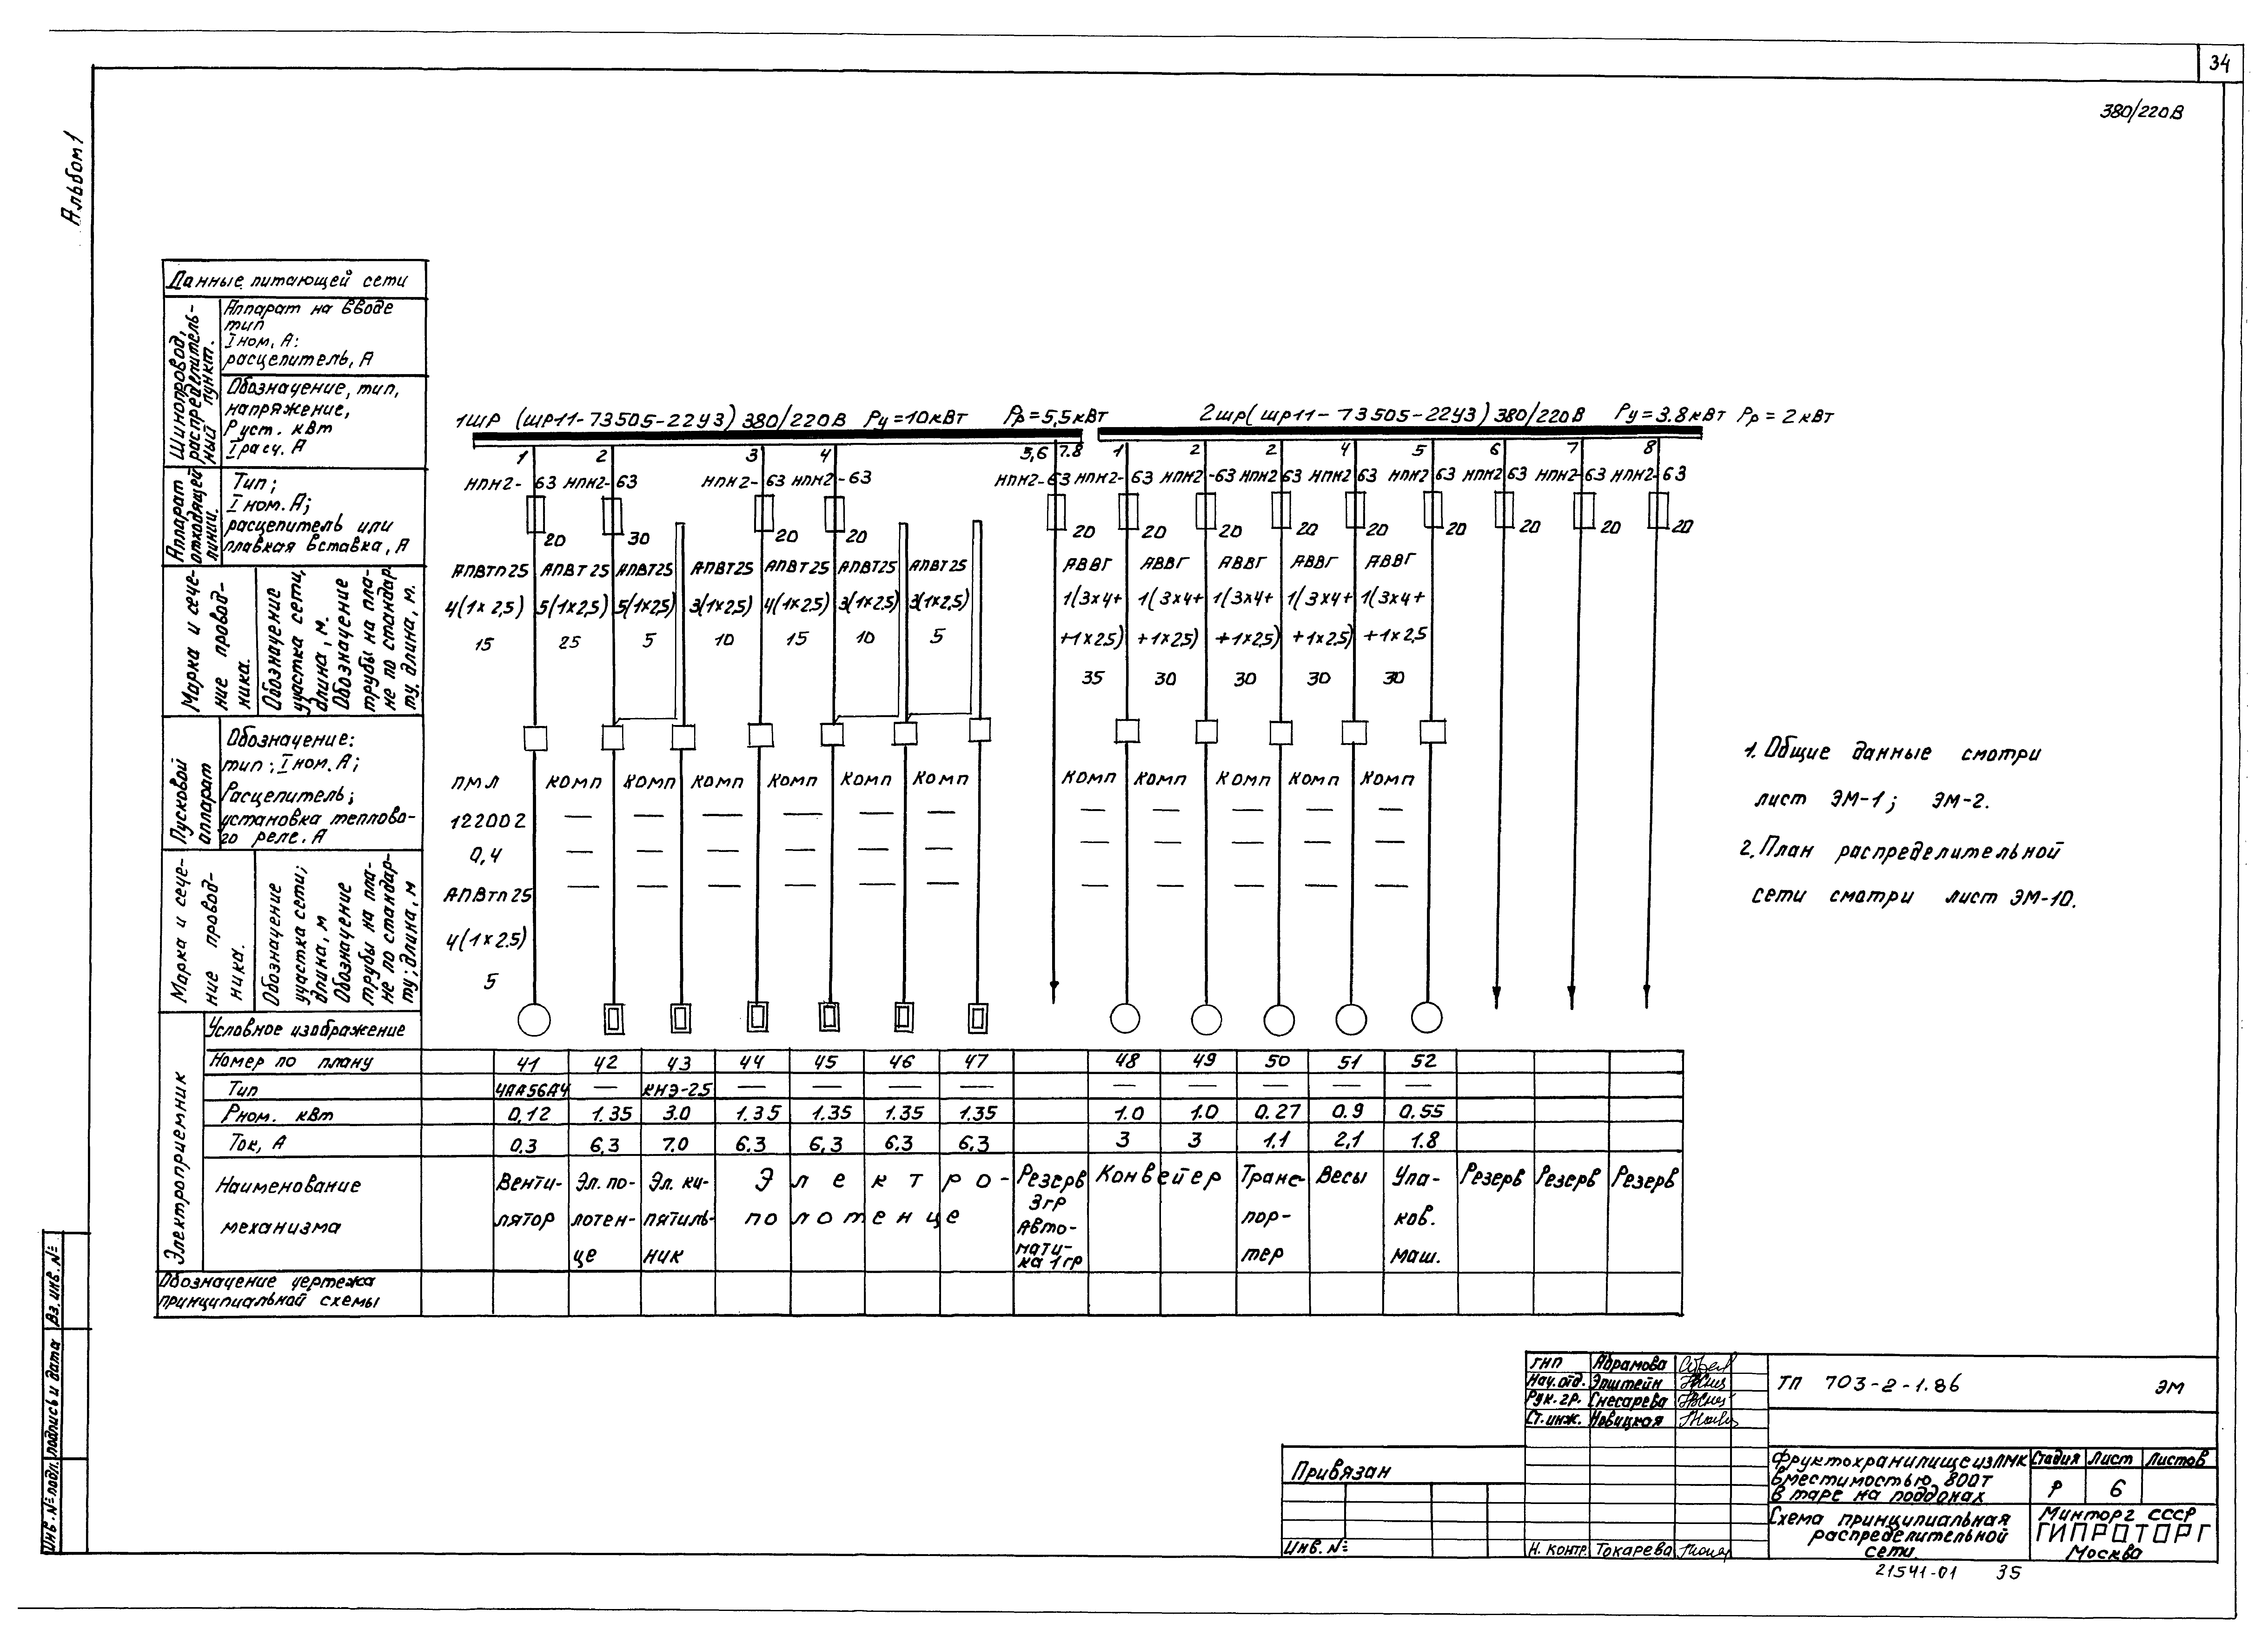 34
380/220В
Альбом 1
Данные питающей сети
Шинопровод, распределительный пункт.
Аппарат на вводе
тип
Iном, А:
расцепитель, А
Обозначение, тип,
напряжение,
Руст. кВт
Iрасч. А
Аппарат отходящей линии.
Тип;
Iном. А;
расцепитель или
плавкая вставка, А
Марка и сечение проводника.
Обозначение участка сети, длина, м.
Обозначение трубы на плане по стандарту, длина, м.
Пусковой аппарат
Обозначение:
тип; Iном. А;
Расцепитель;
установка теплово-
го реле. А
Марка и сечение проводника.
Обозначение участка сети; длина, м
Обозначение трубы на плане по стандарту; длина, м
1шр (шр11-73505-22У3) 380/220В Ру=10кВт Рр=5,5кВт
2шр (шр11-73505-22У3) 380/220В Ру=3.8кВт Рр=2кВт
1 2 3 4 5,6 7.8 1 2 2 4 5 6 7 8
НПН2-63 НПН2-63 НПН2-63 НПН2-63 НПН2-63 НПН2-63 НПН2-63 НПН2 63 НПН2 63 НПН2 63 НПН2 63 НПН2-63 НПН2-63
20 30 20 20 20 20 20 20 20 20 20 20 20
АПВТп25 АПВТ25 АПВТ25 АПВТ25 АПВТ25 АПВТ25 АПВТ25 АВВГ АВВГ АВВГ АВВГ АВВГ
4(1×2,5) 5(1×2,5) 5(1×2,5) 3(1×2,5) 4(1×2,5) 3(1×2,5) 3(1×2,5) 1(3×4+ 1(3×4+ 1(3×4+ 1(3×4+ 1(3×4+
15 25 5 10 15 10 5 +1×2,5) +1×2,5) +1×2,5) +1×2,5) +1×2,5
35 30 30 30 30
ПМЛ КОМП КОМП КОМП КОМП КОМП КОМП КОМП КОМП КОМП КОМП КОМП
122002 — — — — — — — — — — —
0,4 — — — — — — — — — — —
— — — — — — — — — — —
АПВТп25
4(1×2.5)
5
1. Общие данные смотри
лист ЭМ-1; ЭМ-2.
2. План распределительной
сети смотри лист ЭМ-10.
Электроприемник
Условное изображение
Номер по плану 41 42 43 44 45 46 47 48 49 50 51 52
Тип 4АА56А4 — КНЭ-25 — — — — — — — — —
Рном. кВт 0,12 1.35 3.0 1.35 1.35 1.35 1.35 1.0 1.0 0.27 0.9 0.55
Ток, А 0.3 6,3 7.0 6.3 6,3 6.3 6.3 3 3 1.1 2,1 1.8
Наименование
механизма
Венти-
лятор
Эл. по-
лотен-
це
Эл. ки-
пятиль-
ник
Электро-
полотенце
Резерв
3гр
Авто-
мати-
ка 1гр
Конвейер
Транс-
пор-
тер
Весы
Упа-
ков.
маш.
Резерв
Резерв
Резерв
Обозначение чертежа
принципиальной схемы
Инв. № подл. Подпись и дата Вз. инв. №
ГИП Абрамова
Нач. отд. Эпштейн
Рук. гр. Снесарева
Ст. инж. Новицкая
Н. контр. Токарева
Привязан
Инв. №
ТП 703-2-1.86 ЭМ
Фруктохранилище из ЛМК
вместимостью 800т
в таре на поддонах
Стадия Лист Листов
Р 6
Схема принципиальная
распределительной
сети.
Минторг СССР
ГИПРОТОРГ
Москва
21541-01 35